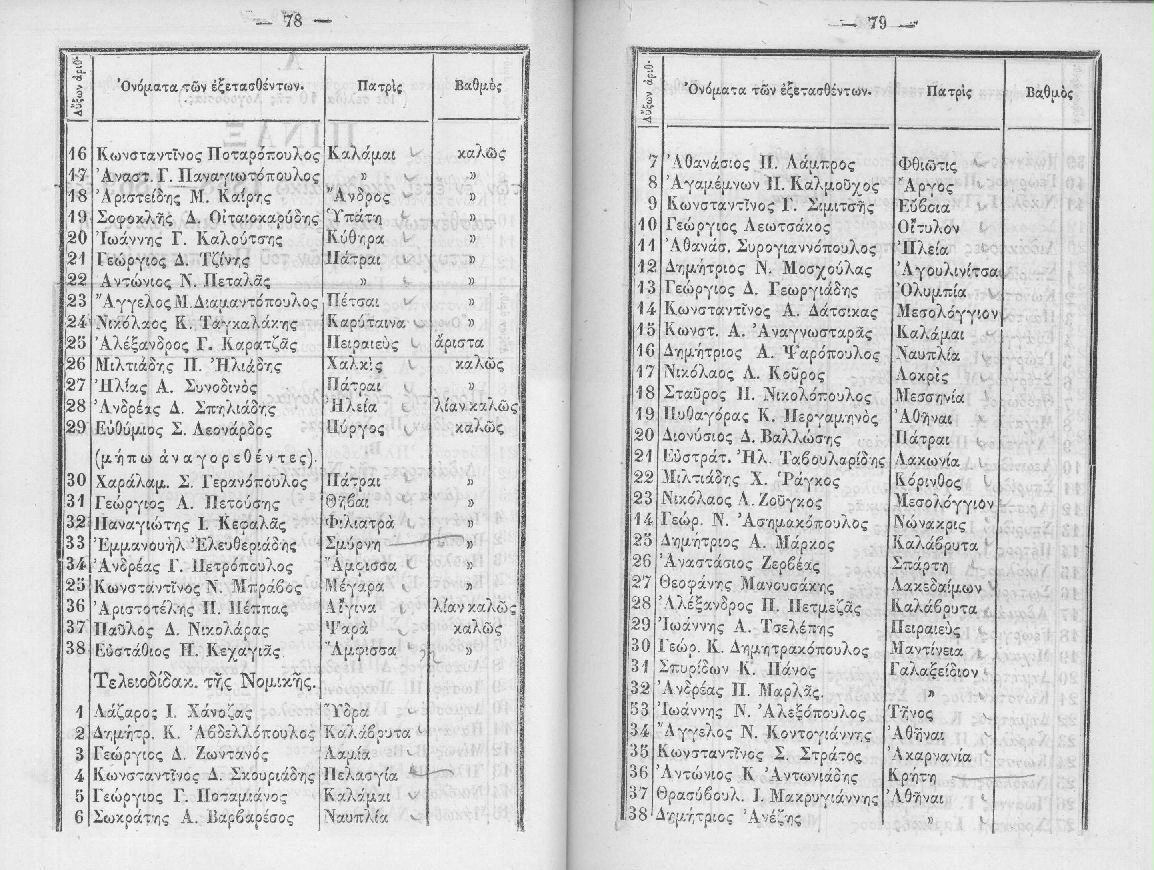 — 78 —
Αὔξων ἀριθ. Ὀνόματα τῶν ἐξετασθέντων. Πατρὶς Βαθμὸς
16 Κωνσταντῖνος Ποταρόπουλος Καλάμαι καλῶς
17 Ἀναστ. Γ. Παναγιωτόπουλος » »
18 Ἀριστείδης Μ. Καΐρης Ἄνδρος »
19 Σοφοκλῆς Δ. Οἰταιοκαρύδης Ὑπάτη »
20 Ἰωάννης Γ. Καλούτσης Κύθηρα »
21 Γεώργιος Δ. Τζίνης Πάτραι »
22 Ἀντώνιος Ν. Πεταλᾶς » »
23 Ἄγγελος Μ. Διαμαντόπουλος Πέτσαι »
24 Νικόλαος Κ. Ταγκαλάκης Καρύταινα »
25 Ἀλέξανδρος Γ. Καρατζᾶς Πειραιεὺς ἄριστα
26 Μιλτιάδης Π. Ἠλιάδης Χαλκὶς καλῶς
27 Ἠλίας Α. Συνοδινὸς Πάτραι »
28 Ἀνδρέας Δ. Σπηλιάδης Ἠλεία λίαν καλῶς
29 Εὐθύμιος Σ. Λεονάρδος Πύργος καλῶς
(μήπω ἀναγορεθέντες).
30 Χαράλαμ. Σ. Γερανόπουλος Πάτραι »
31 Γεώργιος Α. Πετούσης Θῆβαι »
32 Παναγιώτης Ι. Κεφαλᾶς Φιλιατρὰ »
33 Ἐμμανουὴλ Ἐλευθεριάδης Σμύρνη »
34 Ἀνδρέας Γ. Πετρόπουλος Ἄμφισσα »
25 Κωνσταντῖνος Ν. Μπραβὸς Μέγαρα »
36 Ἀριστοτέλης Π. Πέππας Αἴγινα λίαν καλῶς
37 Παῦλος Δ. Νικολάρας Ψαρὰ καλῶς
38 Εὐστάθιος Π. Κεχαγιᾶς Ἄμφισσα »
Τελειοδίδακ. τῆς Νομικῆς.
1 Λάζαρος Ι. Χάνοζας Ὕδρα
2 Δημήτρ. Κ. Ἀβδελλόπουλος Καλάβρυτα
3 Γεώργιος Δ. Ζωντανός Λαμία
4 Κωνσταντῖνος Δ. Σκουριάδης Πελασγία
5 Γεώργιος Γ. Ποταμιάνος Καλάμαι
6 Σωκράτης Α. Βαρβαρέσος Ναυπλία
— 79 —
Αὔξων ἀριθ. Ὀνόματα τῶν ἐξετασθέντων. Πατρὶς Βαθμὸς
7 Ἀθανάσιος Π. Λάμπρος Φθιῶτις
8 Ἀγαμέμνων Π. Καλμοῦχος Ἄργος
9 Κωνσταντῖνος Γ. Σιμιτσῆς Εὔβοια
10 Γεώργιος Λεωτσάκος Οἴτυλον
11 Ἀθανάσ. Συρογιαννόπουλος Ἠλεία
12 Δημήτριος Ν. Μοσχούλας Ἀγουλινίτσα
13 Γεώργιος Δ. Γεωργιάδης Ὀλυμπία
14 Κωνσταντῖνος Α. Δάτσικας Μεσολόγγιον
15 Κωνστ. Α. Ἀναγνωσταρᾶς Καλάμαι
16 Δημήτριος Α. Ψαρόπουλος Ναυπλία
17 Νικόλαος Λ. Κοῦρος Λοκρὶς
18 Σταῦρος Π. Νικολόπουλος Μεσσηνία
19 Πυθαγόρας Κ. Περγαμηνὸς Ἀθῆναι
20 Διονύσιος Δ. Βαλλώσης Πάτραι
21 Εὐστράτ. Ἠλ. Ταβουλαρίδης Λακωνία
22 Μιλτιάδης Χ. Ῥάγκος Κόρινθος
23 Νικόλαος Α. Ζοῦγκος Μεσολόγγιον
14 Γεώρ. Ν. Ἀσημακόπουλος Νώνακρις
25 Δημήτριος Α. Μάρκος Καλάβρυτα
26 Ἀναστάσιος Ζερβέας Σπάρτη
27 Θεοφάνης Μανουσάκης Λακεδαίμων
28 Ἀλέξανδρος Π. Πετμεζᾶς Καλάβρυτα
29 Ἰωάννης Α. Τσελέπης Πειραιεὺς
30 Γεώρ. Κ. Δημητρακόπουλος Μαντίνεια
31 Σπυρίδων Κ. Πάνος Γαλαξείδιον
32 Ἀνδρέας Π. Μαρλᾶς. »
53 Ἰωάννης Ν. Ἀλεξόπουλος Τῆνος
34 Ἄγγελος Ν. Κοντογιάννης Ἀθῆναι
35 Κωνσταντῖνος Σ. Στράτος Ἀκαρνανία
36 Ἀντώνιος Κ Ἀντωνιάδης Κρήτη
37 Θρασύβουλ. Ι. Μακρυγιάννης Ἀθῆναι
38 Δημήτριος Ἀνέζης »